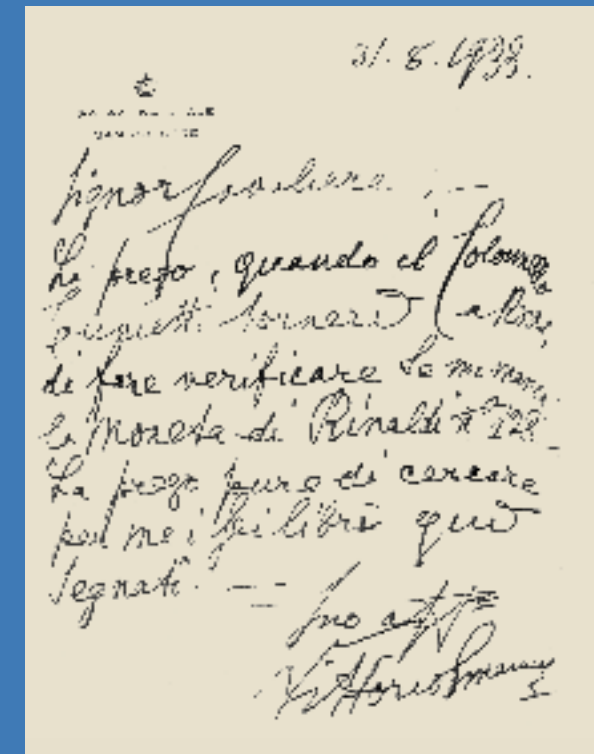 31. 8. 1933.
Signor Cavaliere , —
La prego , quando el Colonnello
tornerà a Roma,
di fare verificare se mi manca
la moneta di Rinaldi n° 128
La prego pure di cercare
per me i libri quì
segnati. —
Suo aff
Vittorio Emanuele